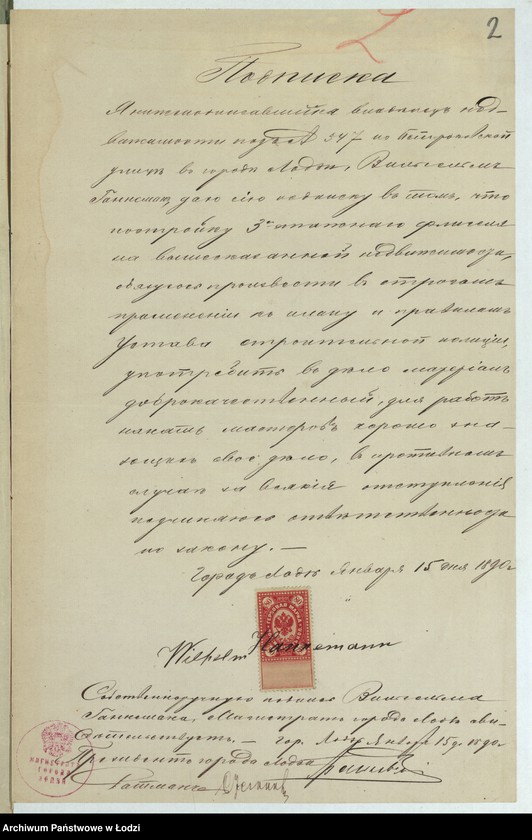 2
Подписка
Я нижеподписавшийся владелец нед-
вижимости подъ № 547 по Петроковской
улицѣ въ городѣ Лодзи, Вильгельмъ
Ганнеманъ даю сію подписку въ томъ, что
постройку 3хъ этажнаго флигеля
на вышесказанной недвижимости,
обязуюсь произвести въ строгомъ
примѣненіи къ плану и правиламъ
Устава строительной полиціи,
употребить въ дѣло матеріалъ
доброкачественный, для работъ
нанять мастеровъ хорошо зна-
ющихъ свое дѣло, въ противномъ
случаѣ за всякія отступленія
подчиняюсь отвѣтственности
по закону. —
Городъ Лодзь Января 15 дня 1890 г.
80 80
Wilhelm Hannemann
Собственноручную подпись Вильгельма
Ганнемана, Магистратъ города Лодзи сви-
дѣтельствуетъ. — гор. Лодзь Января 15 д. 1890 г.
Президентъ города Лодзи
Ратманъ
МАГИСТРАТЪ
ГОРОДА
ЛОДЗИ
Archiwum Państwowe w Łodzi